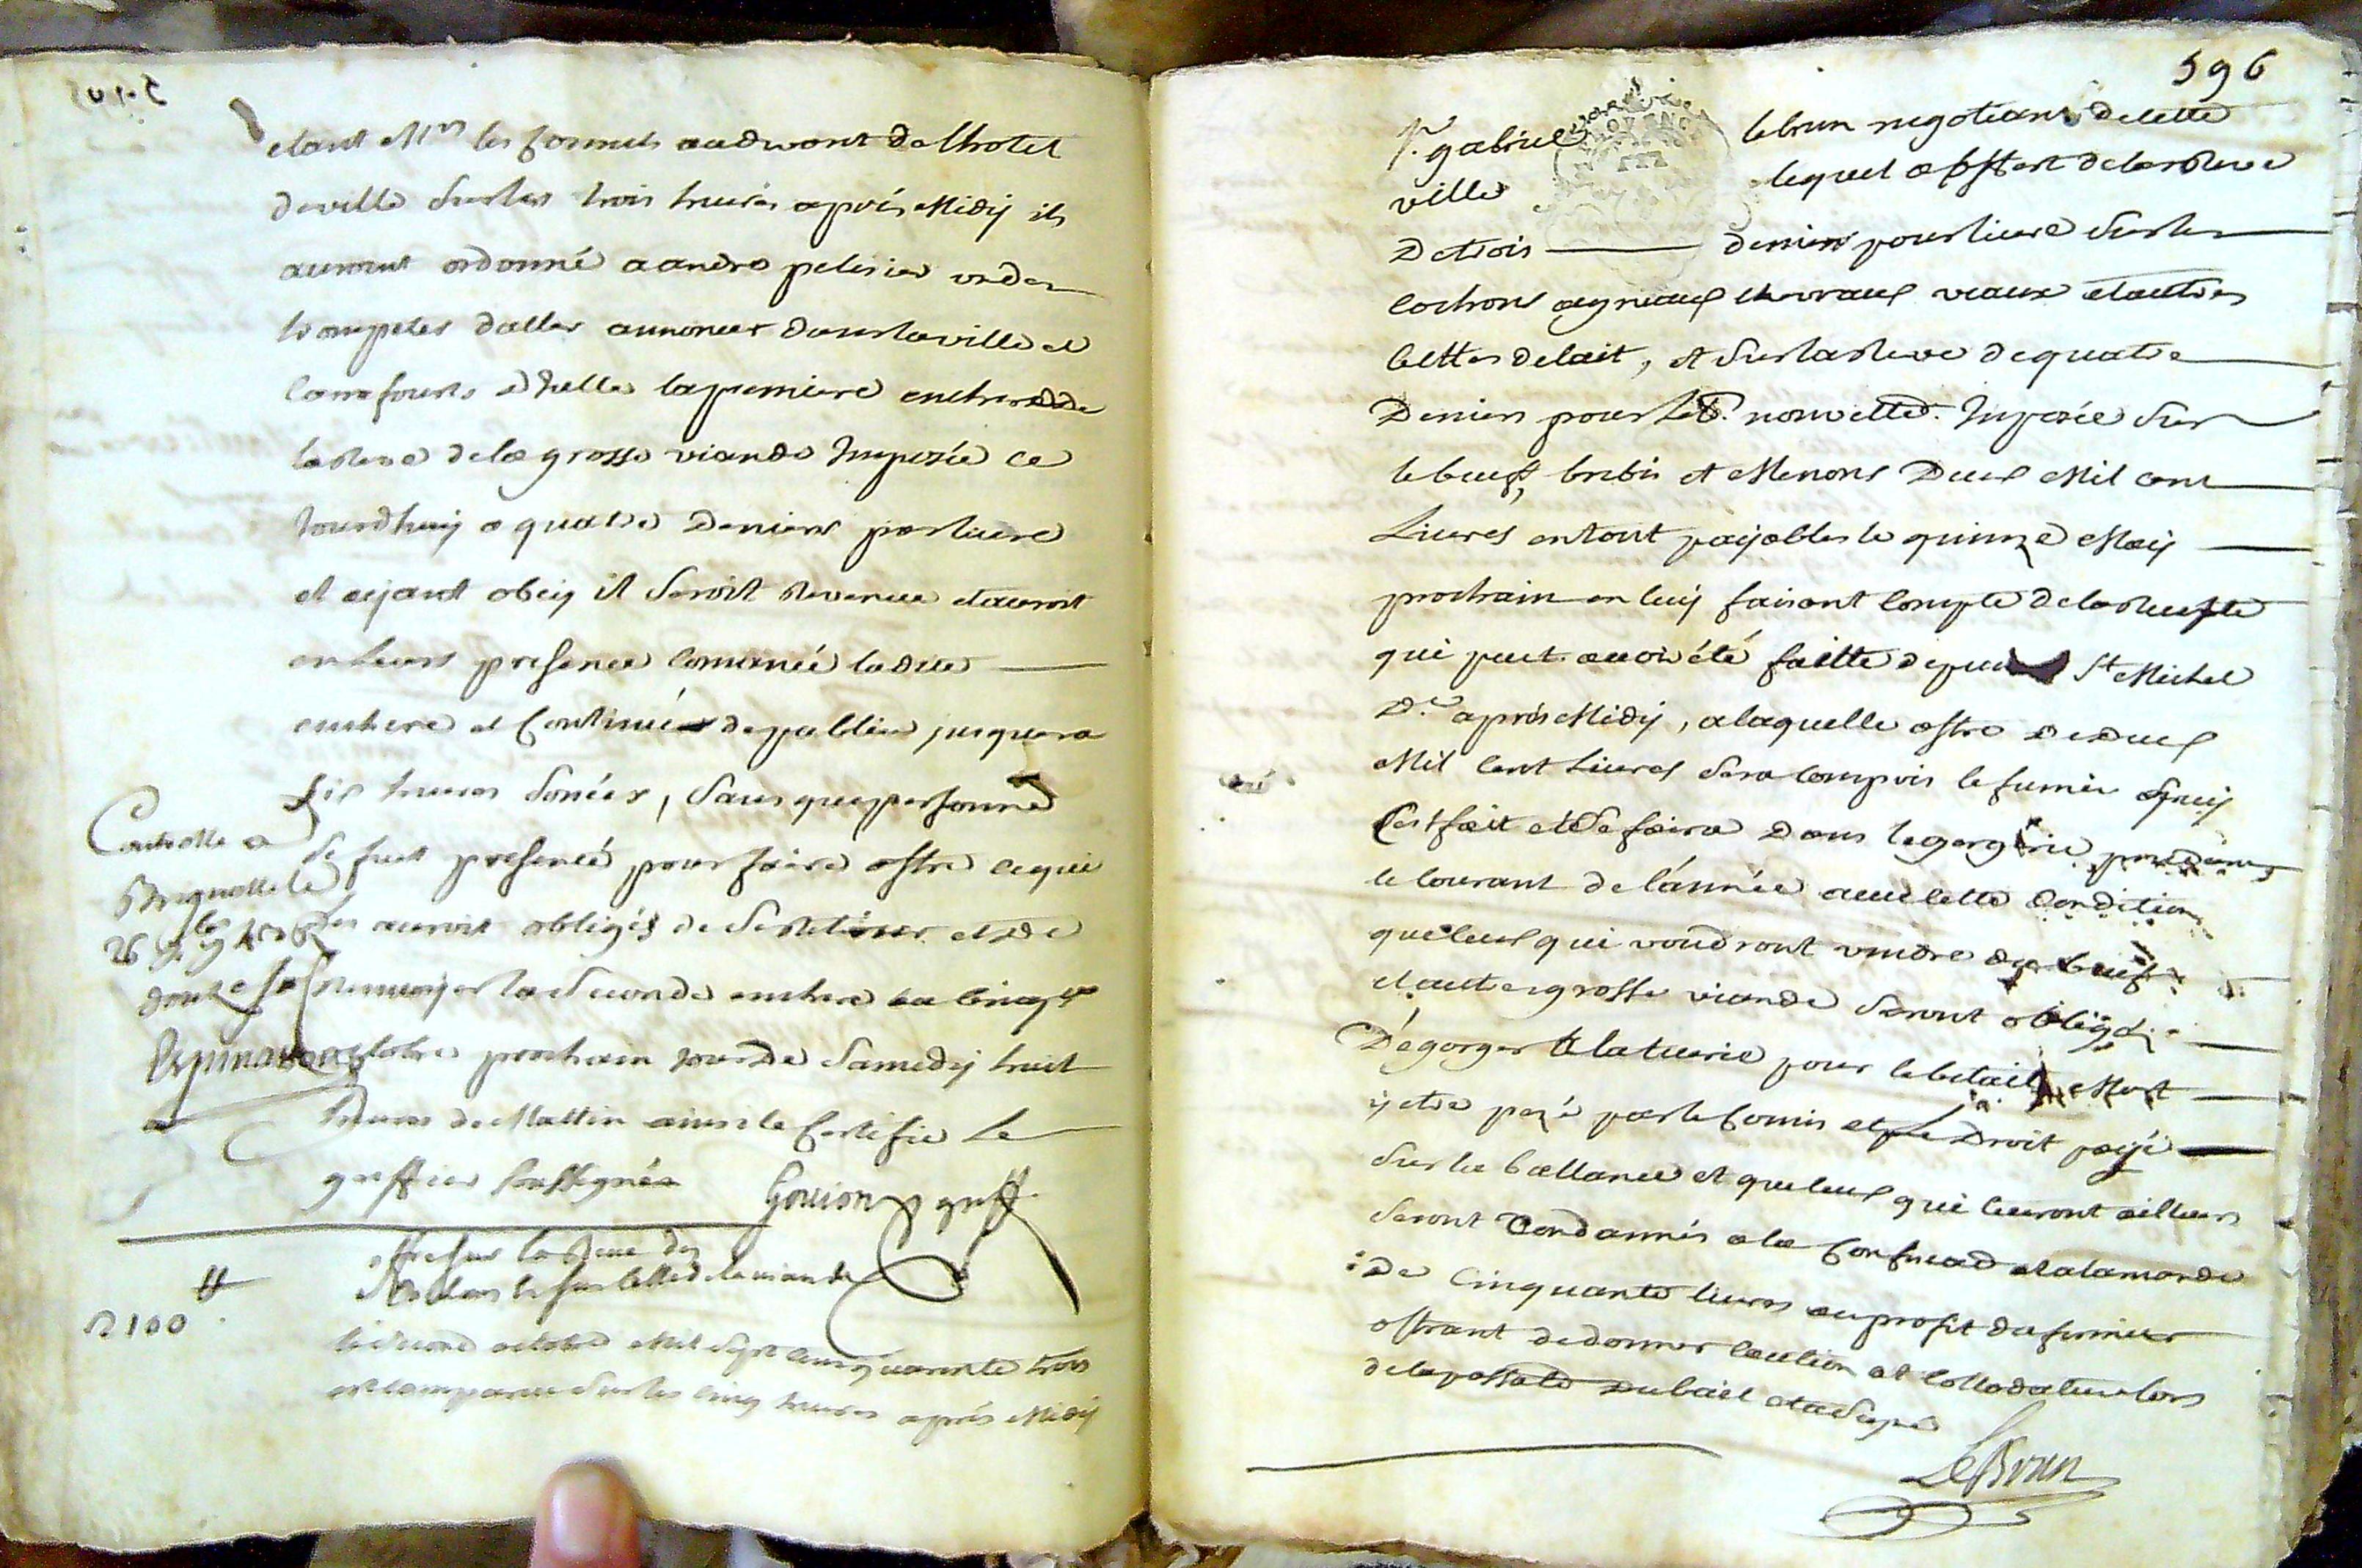 étant Mrs les Consuls audevant de lhotel
deville sur les trois heures aprés Midy ils
auroient ordonné a andre pelisier un des
trompetes daller anoncer dans la ville et
Carrefours d'Icelle la premiere enchere de
la Reve de la grosse viande Imposée ce
Jourdhuy a quatre Deniers par livre
et ayant obey il seroit Revenu et auroit
en Leurs presence Comancé la dite
enchere et Continué de publier jusques a
six heures sonées, sans que personne
se fut presenté pour faire offre ce qui
les auroit obligés de se Retirer et de
Renvoyer la seconde enchere au cinq
octobre prochain jour de Samedy huit
heures de Mattin ainsi le Certifie Le
greffier soussigné Gouion greff
Controlle a
Brignolle le
26
douze s
offre sur la Reve des
2100
le second octobre Mil sept cens quarante trois
est comparu sur les cinq heures aprés Midy
596
Sr. gabriel lebrun negotiant de cette
ville lequel a offert de la Reve
De trois deniers pour livre sur les
Cochons agneaux chevraux veaux et autres
bettes de lait, et sur la Reve de quatre
Deniers pour Lb. nouvelle. Imposée sur
le beuf, brebis et Menons Deux Mil cent
Livres en tout payables le quinze May
prochain en luy faisant Compte de la Recepte
qui peut avoir été faitte depuis St Michel
Dr. aprés Midy, a laquelle offre De Deux
Mil Cent Livres sera compris le fumier qui
sest fait et se faira Dans legorgerie pendant
le courant de l'année avec cette Condition
que ceux qui voudront vendre du beuf
et autre grosse viande seront obligés
D'égorger A la tuerie pour le betail Mort
y etre pezé par le Comis et Le Droit payé
sur la ballance et que ceux qui tueront ailleurs
seront Condannés a la Confiscaon et a lamande
De Cinquante livres au profit du fermier
offrant de donner caution et Collodateur lors
de la passate du bail et a signé
LeBrun